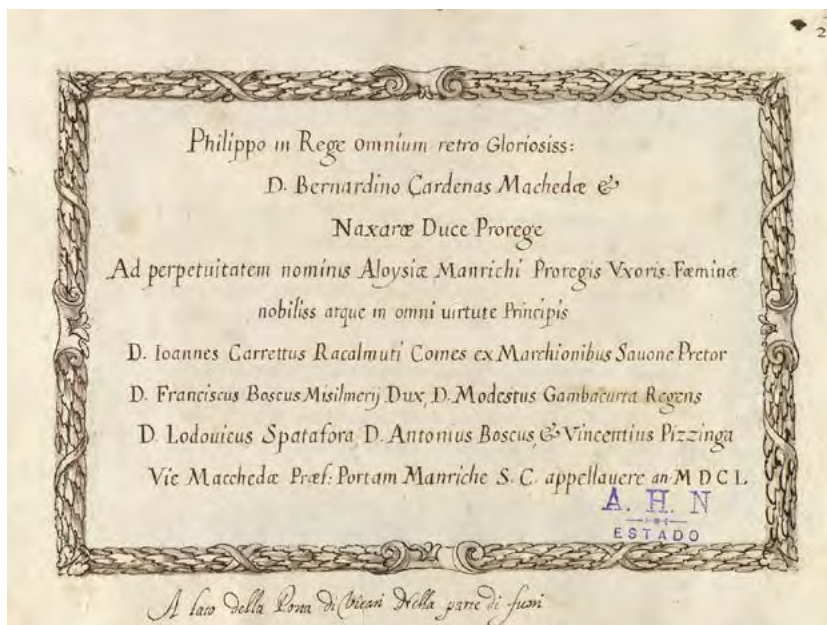 2
Philippo in Rege omnium retro Gloriosiss:
D. Bernardino Cardenas Machedæ &
Naxaræ Duce Prorege
Ad perpetuitatem nominis Aloysiæ Manrichi Proregis Vxoris. Fæminæ
nobiliss atque in omni uirtute Principis
D. Ioannes Carrettus Racalmuti Comes ex Marchionibus Sauone Pretor
D. Franciscus Boscus Misilmerij Dux, D. Modestus Gambacurta Regens
D. Lodouicus Spatafora, D. Antonius Boscus, & Vincentius Pizzinga
Vie Macchedæ Præf: Portam Manriche S. C. appellauere an M D C L
A. H. N
ESTADO
A lato della Porta di Vicari Nella parte di fuori